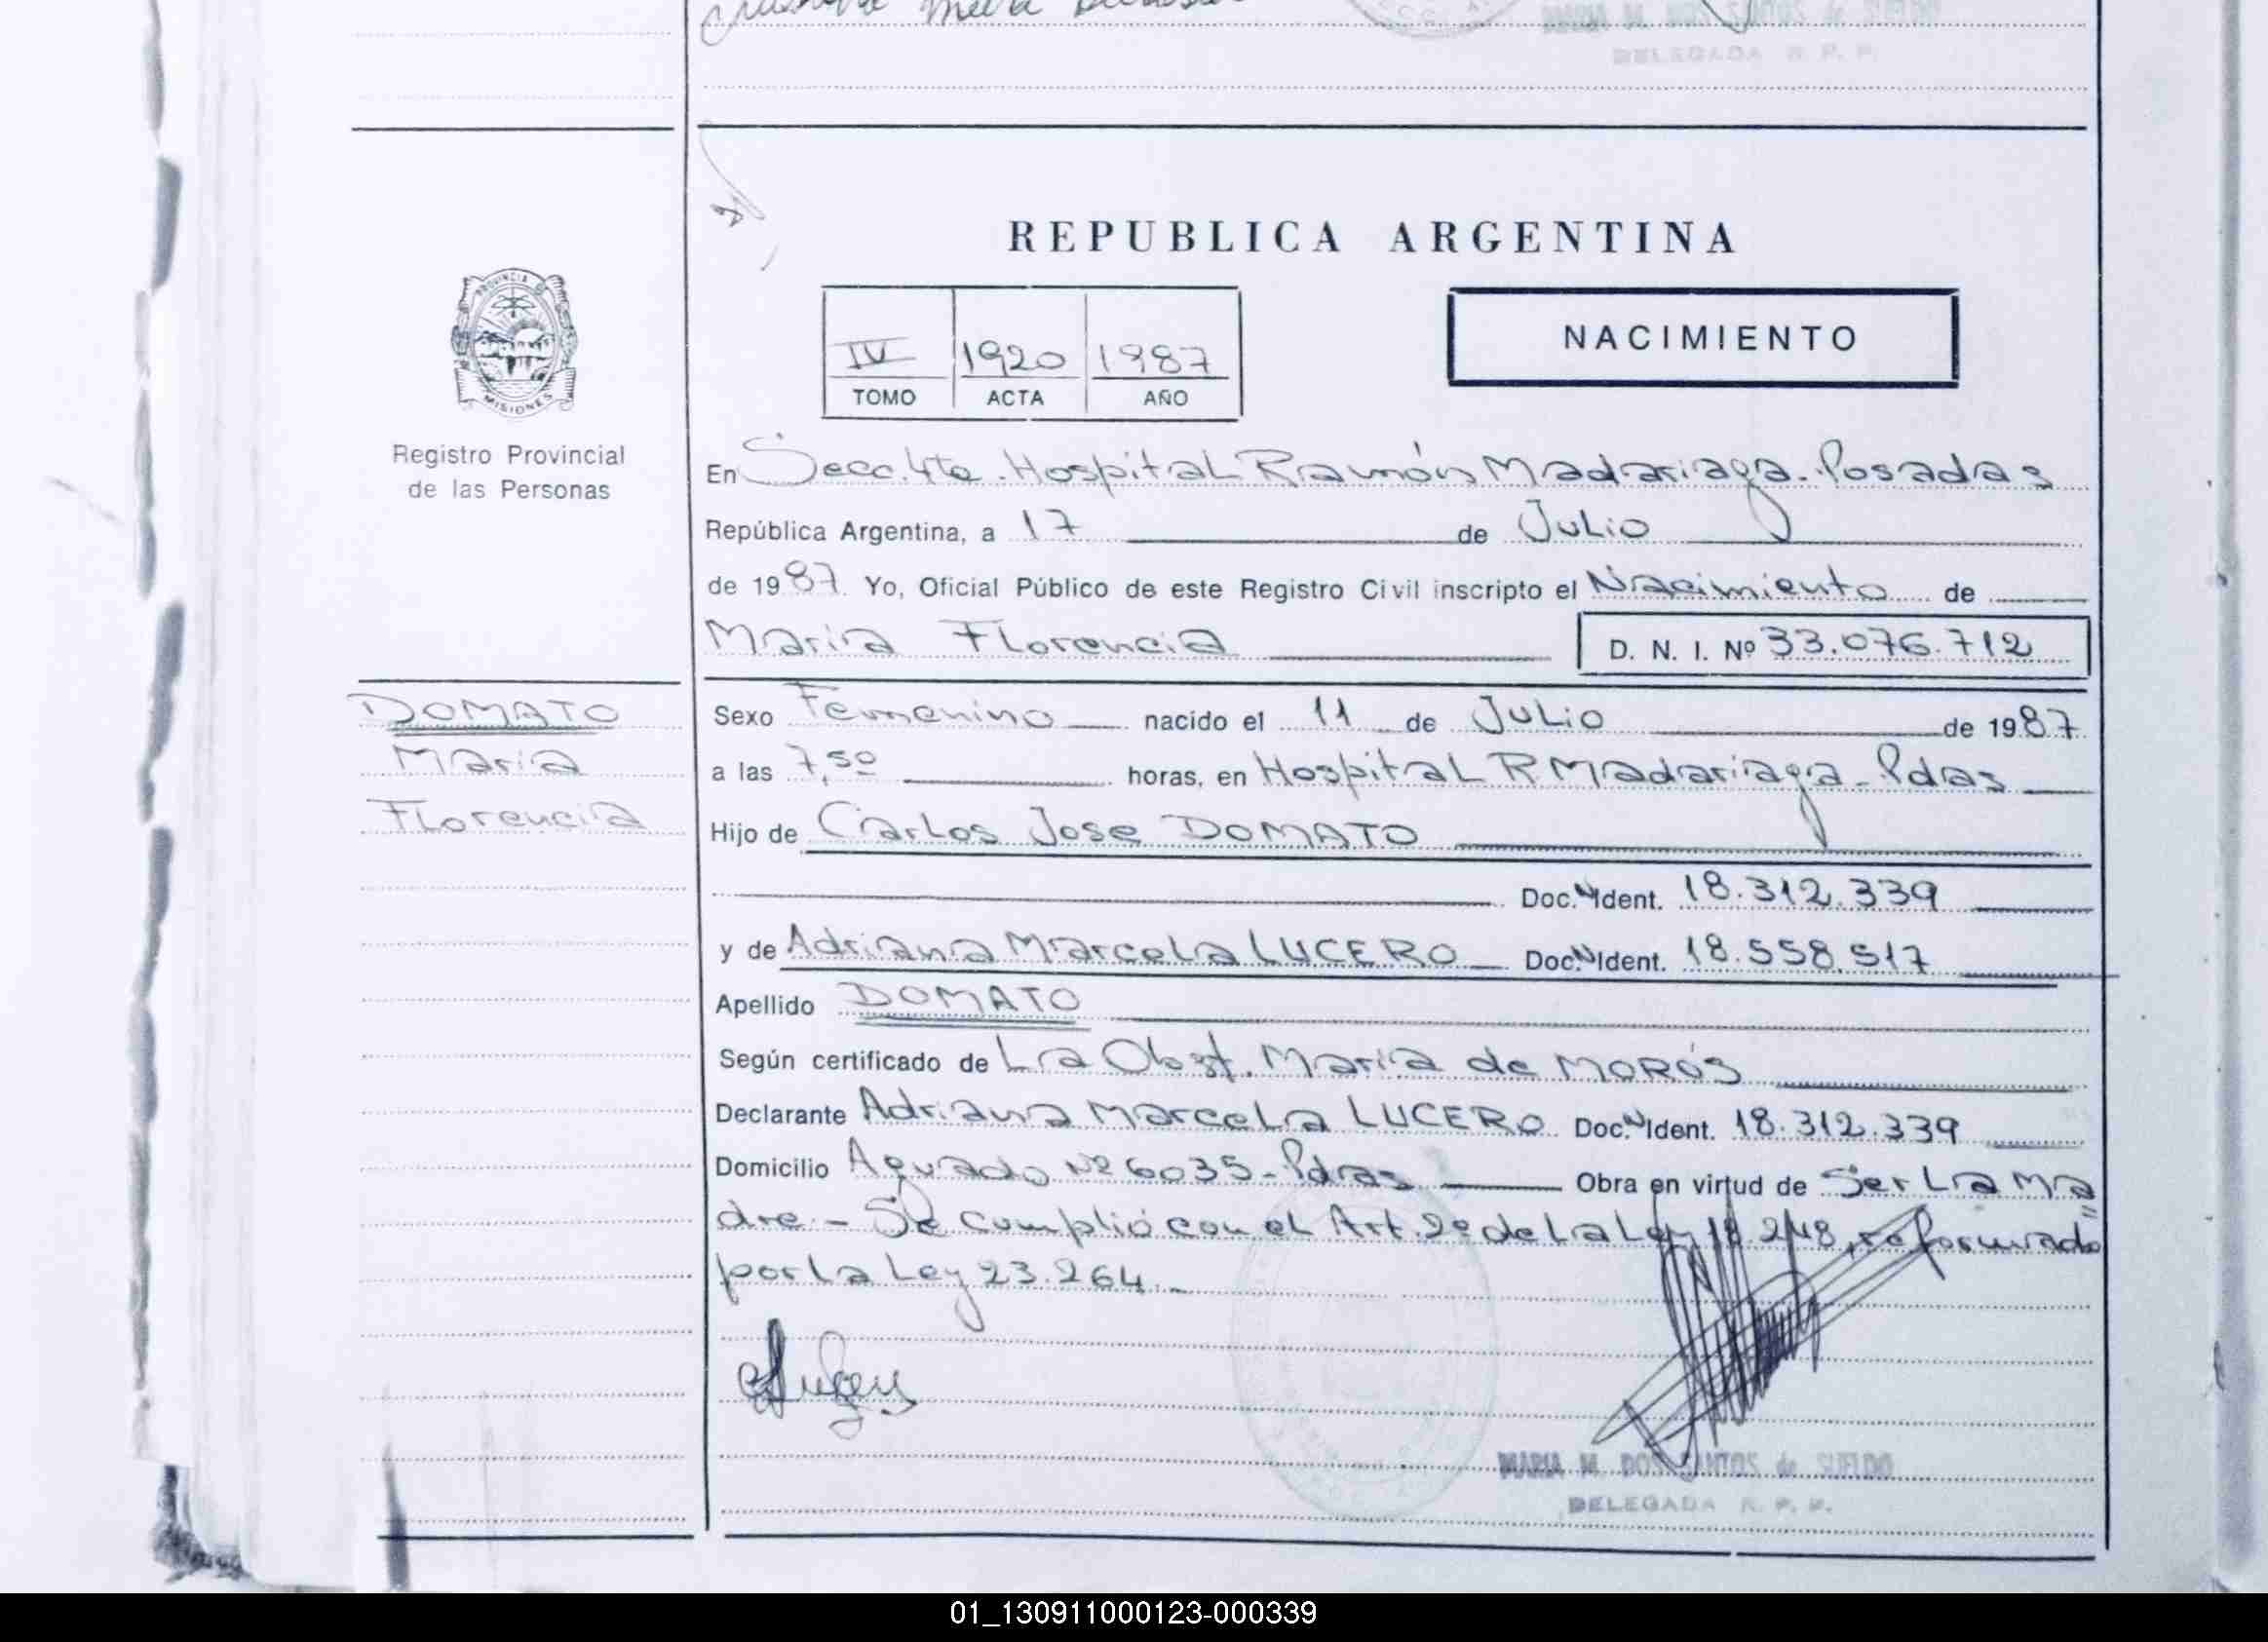 DELEGADA R. P. P.
REPUBLICA ARGENTINA
PROVINCIA DE
MISIONES
Registro Provincial
de las Personas
IV 1920 1987
TOMO ACTA AÑO
NACIMIENTO
En Secc. 4ta. Hospital Ramón Madariaga - Posadas
República Argentina, a 17 de Julio
de 1987 Yo, Oficial Público de este Registro Civil inscripto el Nacimiento de
Maria Florencia D. N. I. Nº 33.076.712
DOMATO
Maria
Florencia
Sexo Femenino nacido el 11 de Julio de 1987
a las 7,50 horas, en Hospital R Madariaga - Pdas
Hijo de Carlos Jose DOMATO
Doc. N Ident. 18.312.339
y de Adriana Marcela LUCERO Doc. N Ident. 18.558.517
Apellido DOMATO
Según certificado de La Obst. Maria de MORÓS
Declarante Adriana Marcela LUCERO Doc. N Ident. 18.312.339
Domicilio Aguado Nº 6035 - Pdas Obra en virtud de Ser La Ma=
dre. - Se cumplió con el Art. 2º de La Ley 18.248, reformado
por La Ley 23.264. -
MARIA M. DOS SANTOS de SUELDO
DELEGADA R. P. P.
01_130911000123-000339